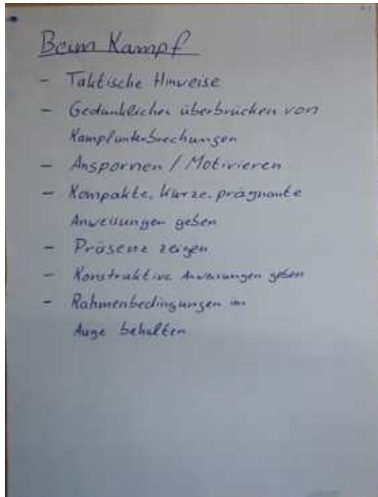 Beim Kampf
- Taktische Hinweise
- Gedankliches überbrücken von
Kampfunterbrechungen
- Anspornen / Motivieren
- Kompakte, kurze, prägnante
Anweisungen geben
- Präsenz zeigen
- Konstruktive Anweisungen geben
- Rahmenbedingungen im
Auge behalten